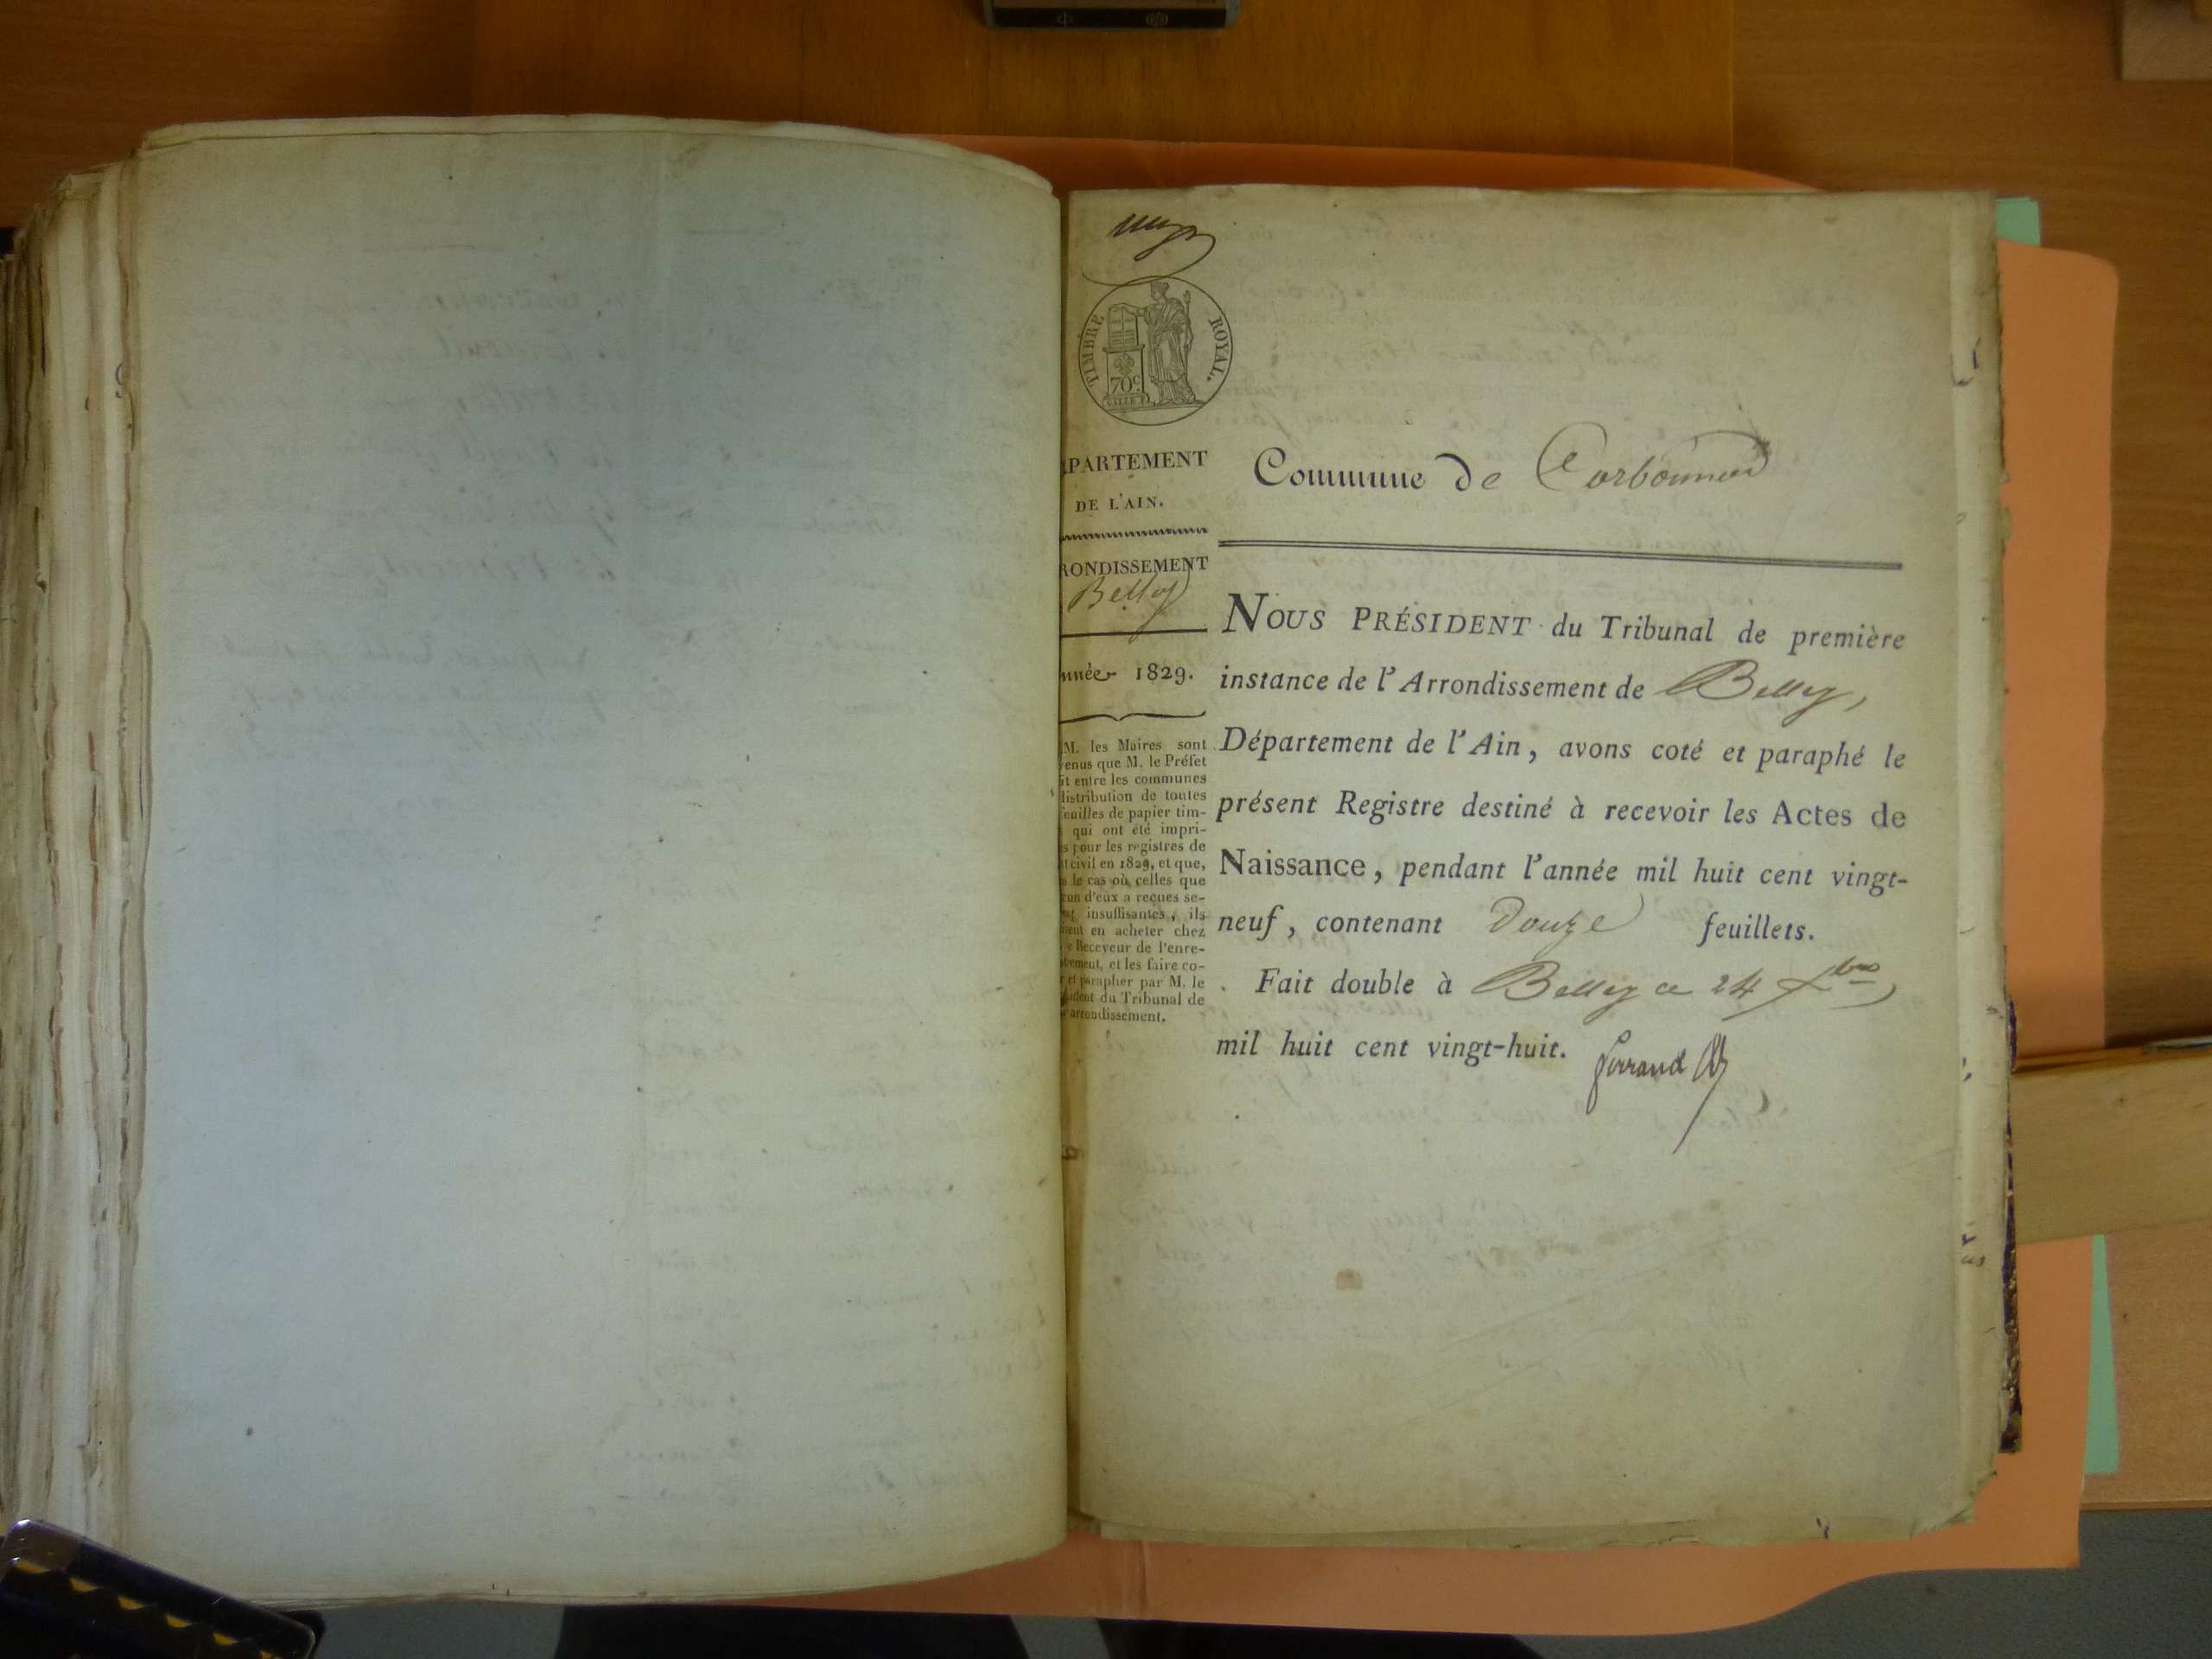 TIMBRE ROYAL.
70c
PARTEMENT
DE L'AIN.
RONDISSEMENT
Belley
nnée 1829.
M. les Maires sont
venus que M. le Préfet
it entre les communes
distribution de toutes
feuilles de papier tim-
qui ont été impri-
s pour les registres de
t civil en 1829, et que,
s le cas où celles que
cun d'eux a reçues se-
insuffisantes, ils
en acheter chez
Receveur de l'enre-
trement, et les faire co-
et parapher par M. le
du Tribunal de
arrondissement.
Commune de Corbonod
NOUS PRÉSIDENT du Tribunal de première
instance de l'Arrondissement de Belley,
Département de l'Ain, avons coté et paraphé le
présent Registre destiné à recevoir les Actes de
Naissance, pendant l'année mil huit cent vingt-
neuf, contenant douze feuillets.
Fait double à Belley ce 24 Xbre
mil huit cent vingt-huit.